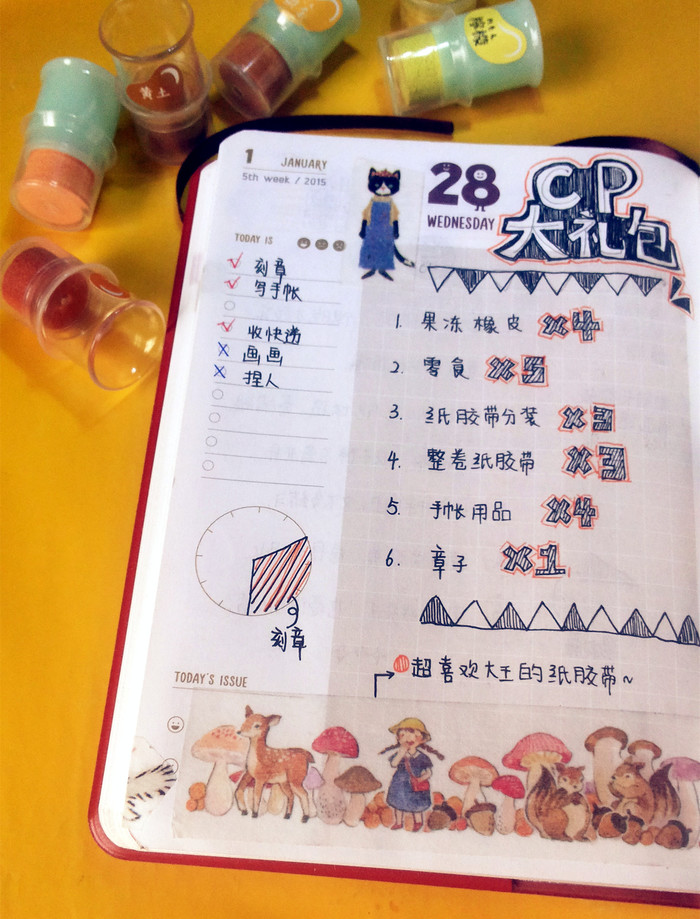 黄土
檸檬
1 JANUARY
5th week / 2015
28
WEDNESDAY
CP
大礼包
TODAY IS
刻章
写手帐
收快递
画画
捏人
刻章
1. 果冻橡皮 x4
2. 零食 x5
3. 纸胶带分装 x3
4. 整卷纸胶带 x3
5. 手帐用品 x4
6. 章子 x1
超喜欢大王的纸胶带~
TODAY'S ISSUE